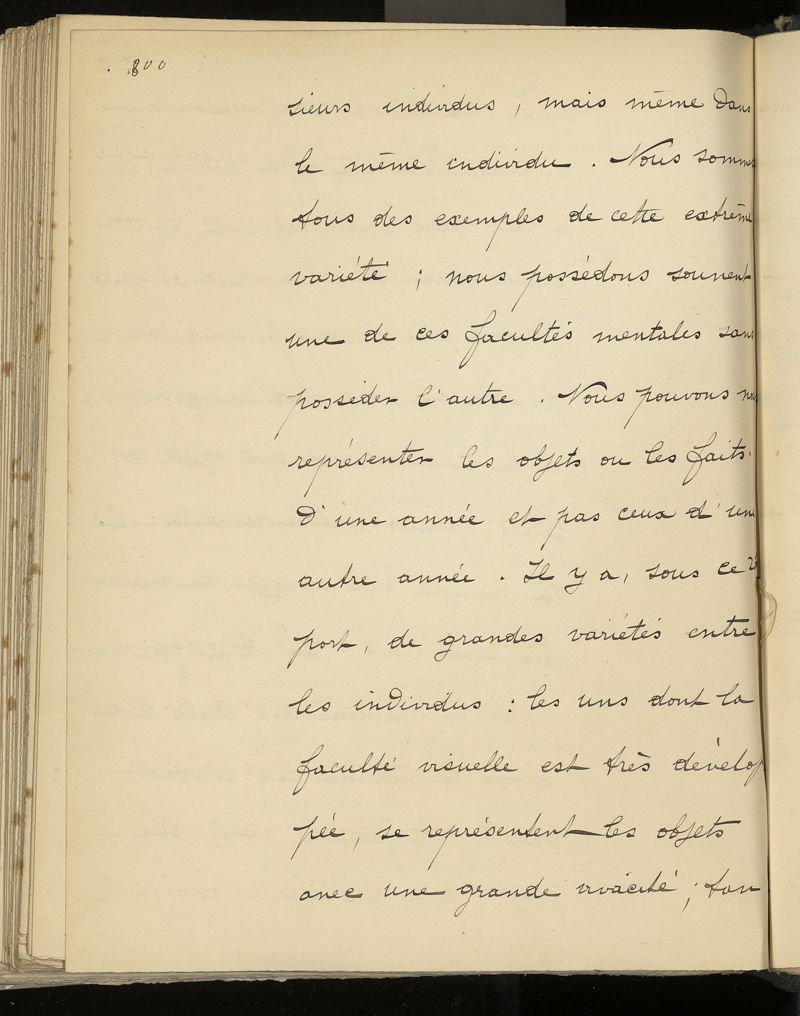 800
sieurs individus, mais même dans
le même individu. Nous sommes
tous des exemples de cette extrême
variété ; nous possédons souvent
une de ces facultés mentales sans
posséder l'autre. Nous pouvons
représenter les objets ou les faits
d'une année et pas ceux d'une
autre année. Il y a, sous ce
port, de grandes variétés entre
les individus : les uns dont la
faculté visuelle est très dévelop
pée, se représentent les objets
avec une grande vivacité ;